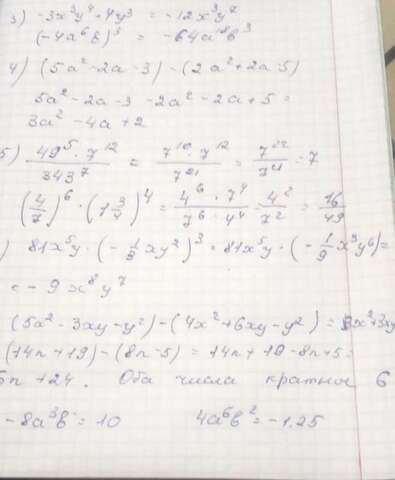 3) -3x³y⁴ · 4y³ = -12x³y⁷
(-4a⁶b)³ = -64a¹⁸b³
4) (5a² - 2a - 3) - (2a² + 2a - 5)
5a² - 2a - 3 - 2a² - 2a + 5 =
3a² - 4a + 2
5) 49⁵ · 7¹² / 343⁷ = 7¹⁰ · 7¹² / 7²¹ = 7²² / 7²¹ = 7
(4/7)⁶ · (1 3/4)⁴ = 4⁶ · 7⁴ / 7⁶ · 4⁴ = 4² / 7² = 16/49
) 81x⁵y · (- 1/9 xy²)³ = 81x⁵y · (- 1/9 x³y⁶) =
= - 9x⁸y⁷
(5x² - 3xy - y²) - (4x² + 6xy - y²) =
(14n + 19) - (8n - 5) = 14n + 19 - 8n + 5 =
6n + 24. Оба числа кратное 6
-8a³b = 10 4a⁶b² = -1.25